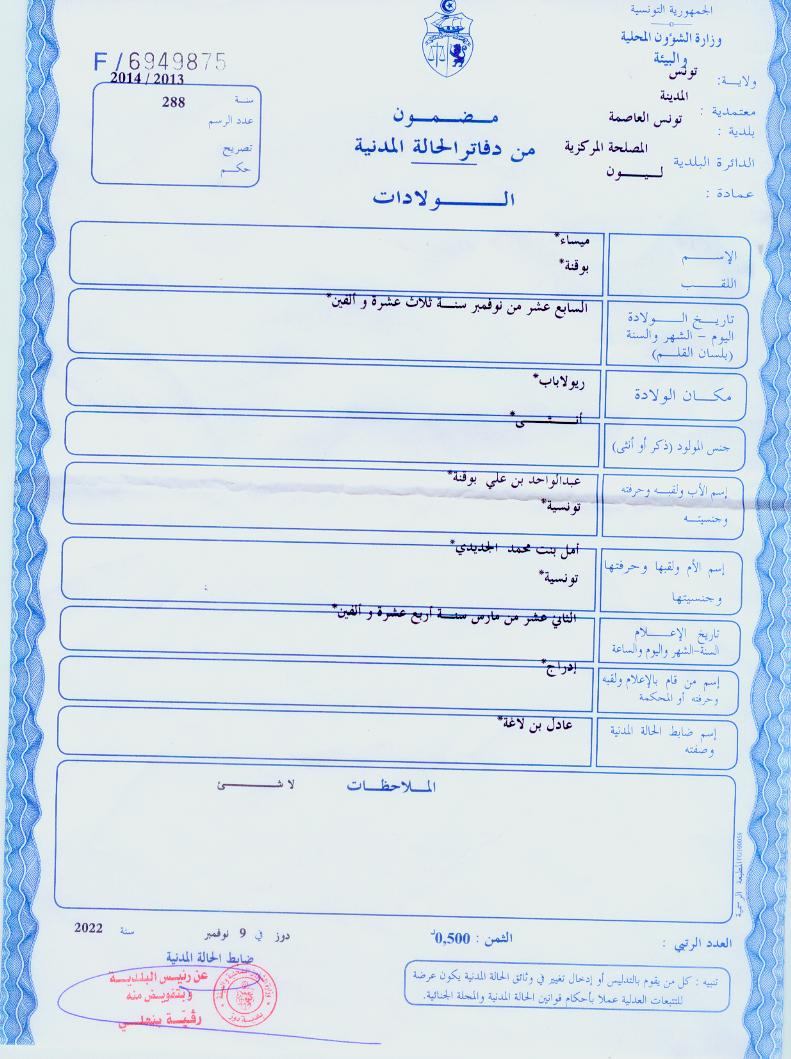 الجمهورية التونسية
وزارة الشؤون المحلية
والبيئة
F/6949875
ولاية: تونس
2014/2013
معتمدية : المدينة
سنة 288
بلدية : تونس العاصمة
عدد الرسم
مضمون
الدائرة البلدية المصلحة المركزية
تصريح
من دفاتر الحالة المدنية
عمادة : ليون
حكم
الولادات
الإسم ميساء*
اللقب بوقنة*
تاريخ الولادة السابع عشر من نوفمبر سنة ثلاث عشرة و ألفين*
اليوم - الشهر والسنة
(بلسان القلم)
مكان الولادة ريولاباب*
جنس المولود (ذكر أو أنثى) أنثى*
إسم الأب ولقبه وحرفته عبدالواحد بن علي بوقنة*
وجنسيته تونسية*
إسم الأم ولقبها وحرفتها أمل بنت محمد الجديدي*
وجنسيتها تونسية*
تاريخ الإعلام الثاني عشر من مارس سنة أربع عشرة و ألفين*
السنة-الشهر واليوم والساعة
إسم من قام بالإعلام ولقبه إدراج*
وحرفته أو المحكمة
إسم ضابط الحالة المدنية عادل بن لاغة*
وصفته
الملاحظات لا شئ
المطبعة الرسمية
العدد الرتبي : الثمن : 0,500د دوز في 9 نوفمبر سنة 2022
ضابط الحالة المدنية
تنبيه : كل من يقوم بالتدليس أو إدخال تغيير في وثائق الحالة المدنية يكون عرضة
للتتبعات العدلية عملا بأحكام قوانين الحالة المدنية والمجلة الجنائية.
عن رئيس البلدية
وبتفويض منه
رقية بنعلي
بلدية دوز